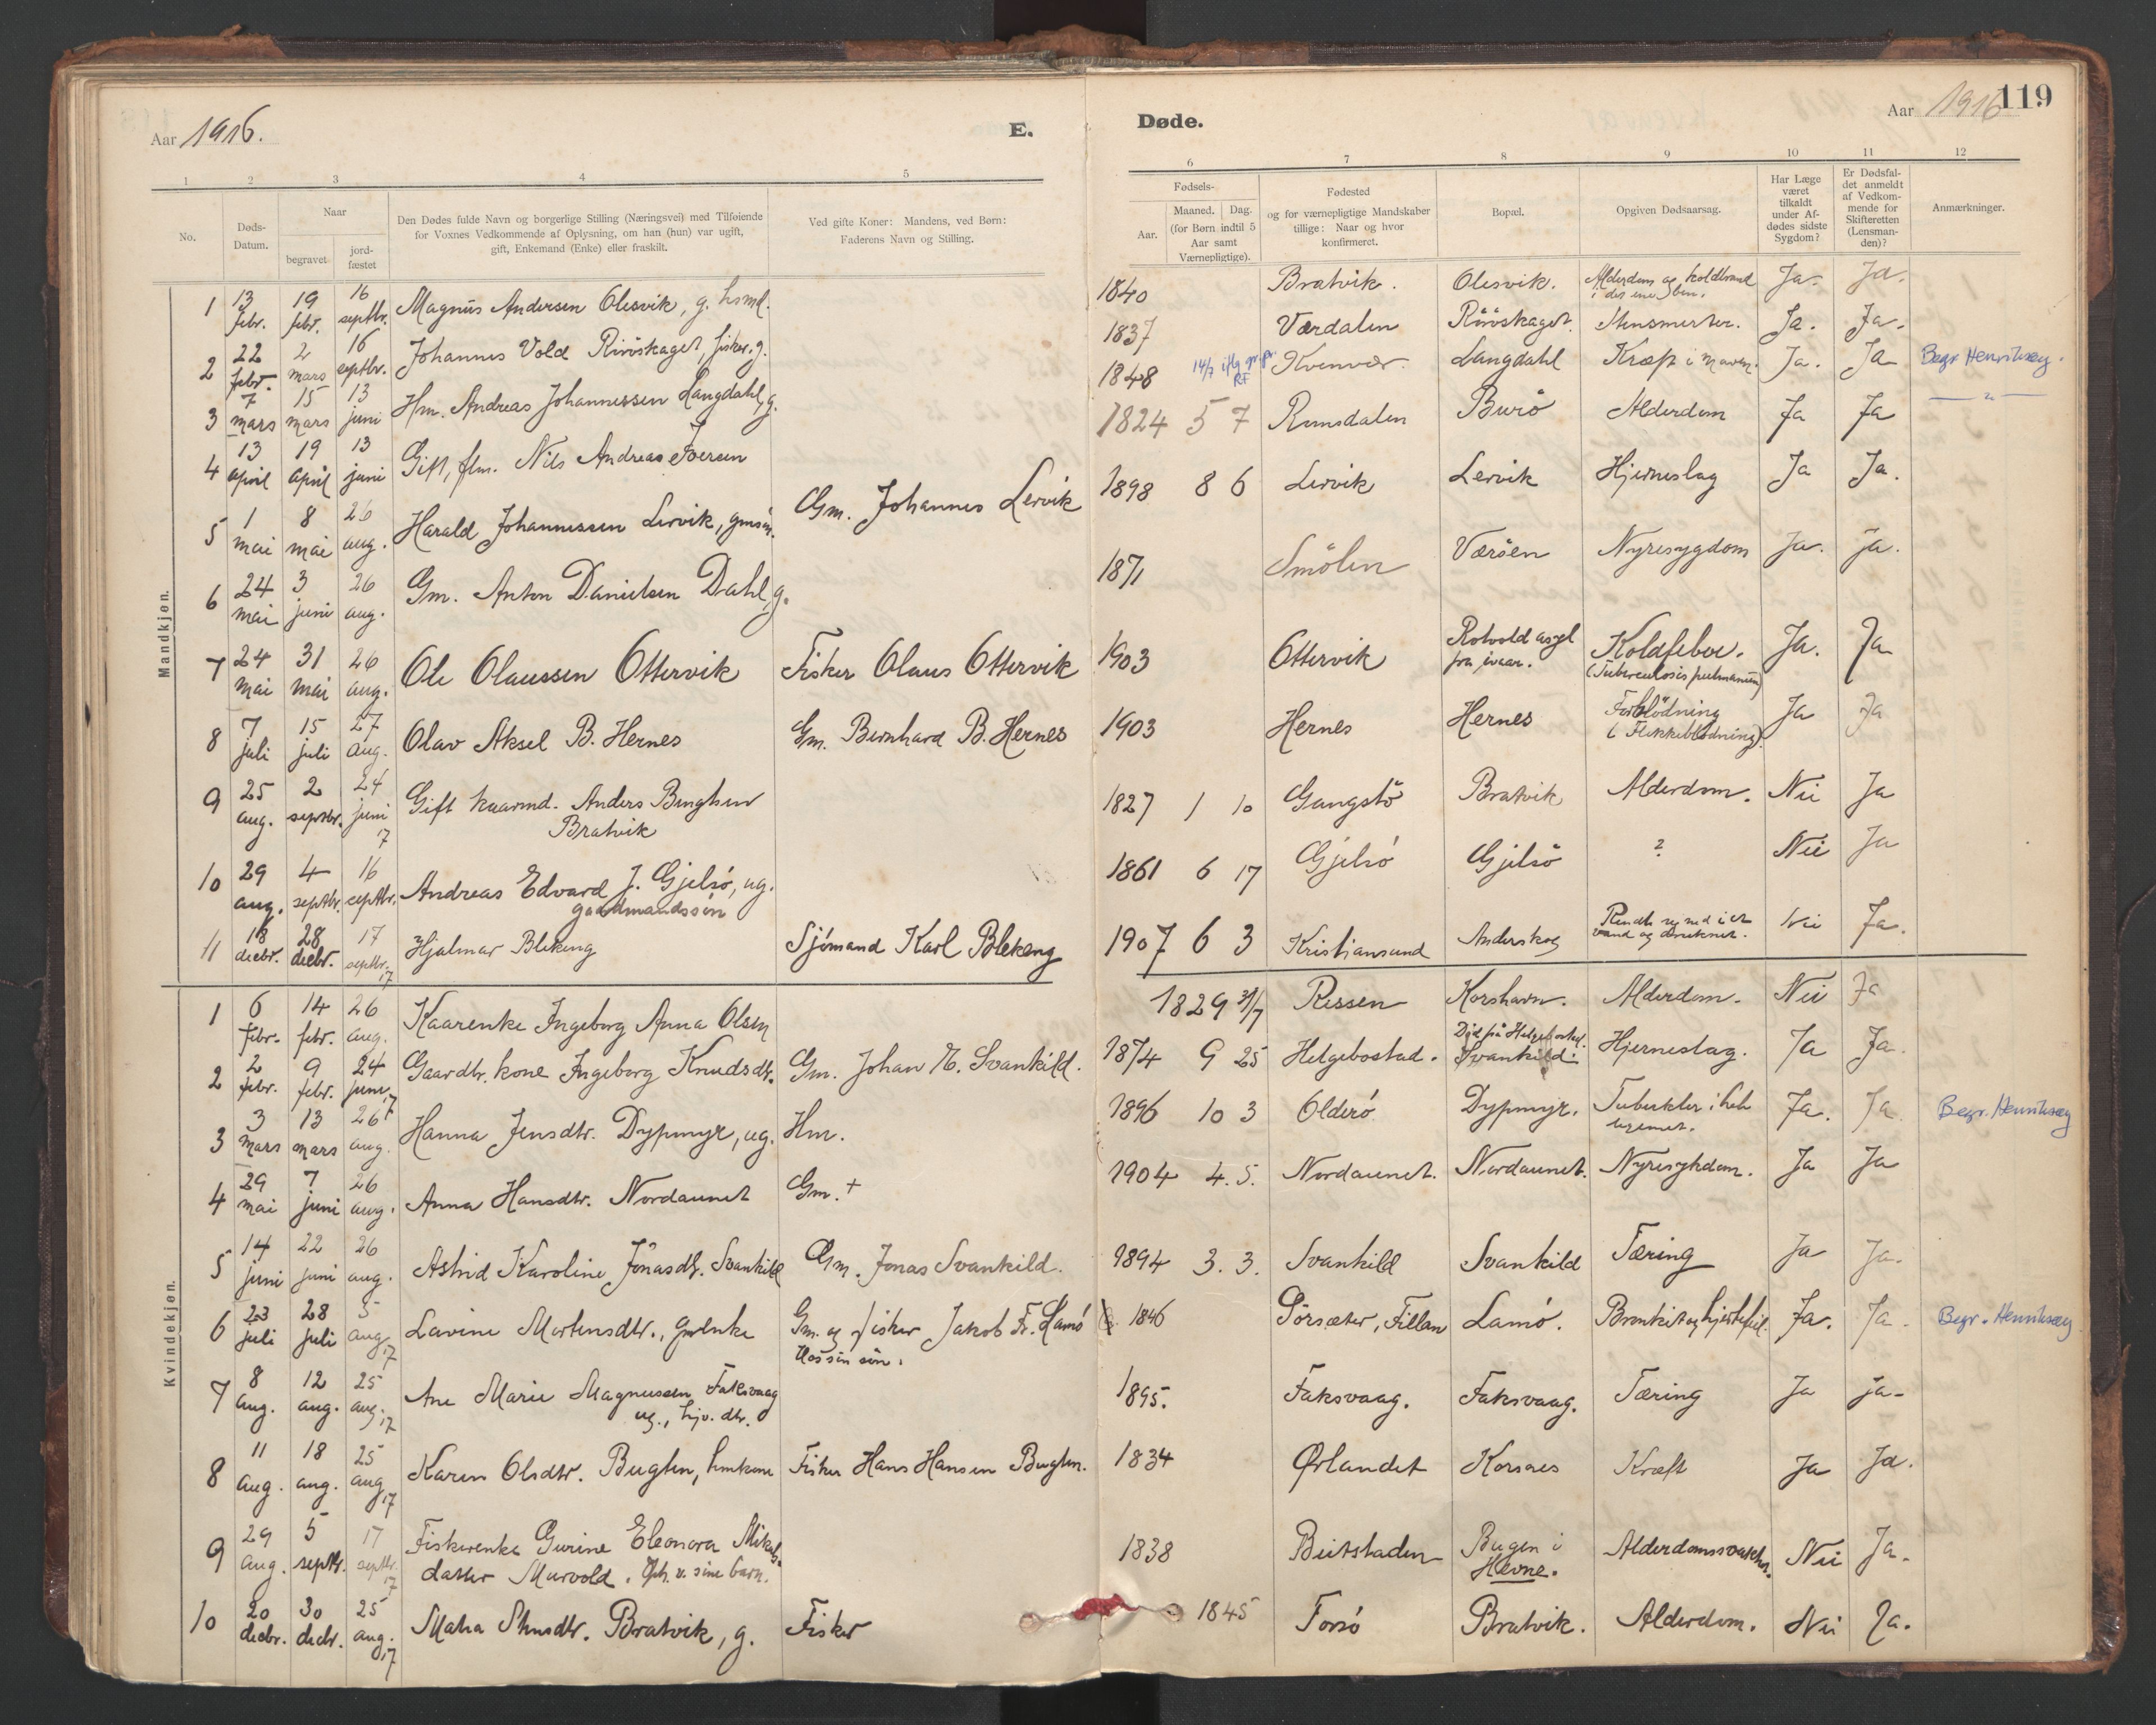 Aar 1916.
E.
Døde.
Aar 1916
119
1 2 3 4 5 6 7 8 9 10 11 12
No.
Døds-
Datum.
Naar
begravet
jord-
fæstet
Den Dødes fulde Navn og borgerlige Stilling (Næringsvei) med Tilføiende
for Voxnes Vedkommende af Oplysning, om han (hun) var ugift,
gift, Enkemand (Enke) eller fraskilt.
Ved gifte Koner: Mandens, ved Børn:
Faderens Navn og Stilling.
Fødsels-
Aar.
Maaned. Dag.
(for Børn indtil 5
Aar samt
Værnepligtige).
Fødested
og for værnepligtige Mandskaber
tillige: Naar og hvor
konfirmeret.
Bopæl.
Opgiven Dødsaarsag.
Har Læge
været
tilkaldt
under Af-
dødes sidste
Sygdom?
Er Dødsfal-
det anmeldt
af Vedkom-
mende for
Skifteretten
(Lensman-
den)?
Anmærkninger.
Mandkjøn.
1 13 febr. 19 febr. 16 septbr. Magnus Andersen Olesvik, g. hsmd. 1840 Bratvik. Olesvik. Alderdom og koldbrand i det ene ben. Ja. Ja.
2 22 febr. 2 mars 16 septbr. Johannes Vold Rivöskaget, fisker. g. 1837 Værdalen Rivöskaget. Stensmerter. Ja. Ja.
3 7 mars 15 mars 13 juni Hm. Andreas Johannessen Langdahl, g. 1848 14/7 iflg Kvenvær. Langdahl Kræft i maven. Ja. Ja Begr Henriksøy.
4 13 april 19 april 13 juni Gift, flm. Nils Andreas Iversen 1824 5 7 Romsdalen Burö Alderdom Ja Ja — " —
5 1 mai 8 mai 26 aug. Harald Johannessen Lervik, gmsön. Gm. Johannes Lervik 1898 8 6 Lervik Lervik Hjerneslag Ja Ja.
6 24 mai 3 juni 26 aug. Gm. Anton Danielsen Dahl, g. 1871 Smölen Væröen Nyresygdom Ja. ja.
7 24 mai 31 mai 26 aug. Ole Olaussen Ottervik Fisker Olaus Ottervik 1903 Ottervik Rotvold asyl fra ivaar. Koldfeber. (Tuberculosis pulmanum) Ja. Ja
8 7 juli 15 juli 27 aug. Olav Aksel B. Hernes Gm. Bernhard B. Hernes 1903 Hernes Hernes Forblödning (Flekkeblödning). Ja Ja
9 25 aug. 2 septbr. 24 juni 17 Gift kaarmd. Anders Bengtsen
Bratvik 1827 1 10 Gangstö Bratvik Alderdom. Nei Ja
10 29 aug. 4 septbr. 16 septbr. Andreas Edvard J. Gjelsö, ug.
gaardmandssön 1861 6 17 Gjelsö Gjelsö ? Nei Ja
11 18 decbr. 28 decbr. 17 septbr. 17 Hjalmar Blekeng Sjömand Karl Blekeng 1907 6 3 Kristiansund Anderskog Rendte ned i et vand og druknet. Nei Ja.
Kvindekjøn.
1 6 febr. 14 febr. 26 aug. Kaarenke Ingeborg Anna Olsen 1829 31/7 Rissen Korshavn. Alderdom. Nei Ja
2 2 febr. 9 febr. 24 juni 17 Gaardbr. kone Ingeborg Knudsdtr. Gm. Johan N. Svankild. 1874 9 25 Helgebostad. Död på Helgebostad. Svankild. Hjerneslag. Ja Ja.
3 3 mars 13 mars 26 aug. Hanna Jensdtr. Dypmyr, ug. Hm. 1896 10 3 Olderö Dypmyr. Tuberkler i hele legemet. Ja. Ja. Begr. Henriksøy
4 29 mai 7 juni 26 aug. Anna Hansdtr. Nordaunet Gm. + 1904 4. 5. Nordaunet. Nordaunet. Nyresykdom. Ja Ja
5 14 juni 22 juni 26 aug. Astrid Karoline Jonasdtr. Svankild Gm. Jonas Svankild. 1894 3. 3. Svankild Svankild Tæring Ja Ja.
6 23 juli 28 juli 5 aug. 17 Lavine Mortensdtr., gmenke Gm. og fisker Jakob F. Lamö
Hos sin sön. 1846 Sörsæter, Fillan Lamö. Bronkit og hjertefeil. Ja. Ja. Begr. Henriksøy
7 8 aug. 12 aug. 25 aug. 17 Ane Marie Magnussen Faksvaag
ug., hjv. dtr. 1895. Faksvaag. Faksvaag. Tæring Ja ja.
8 11 aug. 18 aug. 25 aug. 17 Karen Olsdtr. Bugten, hmkone Fisker Hans Hansen Bugten. 1834 Ørlandet Korsnes Kræft Ja Ja.
9 29 aug. 5 septbr. 17 septbr. 17 Fiskerenke Gurine Eleonora Mikals-
datter Murvold. Oph. v. sine barn. 1838 Beitstaden Bugen i Hevne. Alderdomssvækkelse. Nei Ja.
10 20 decbr. 30 decbr. 25 aug. 17 Malia Stensdtr. Bratvik, g. Fisker 1845 Forsö Bratvik. Alderdom. Nei Ja.